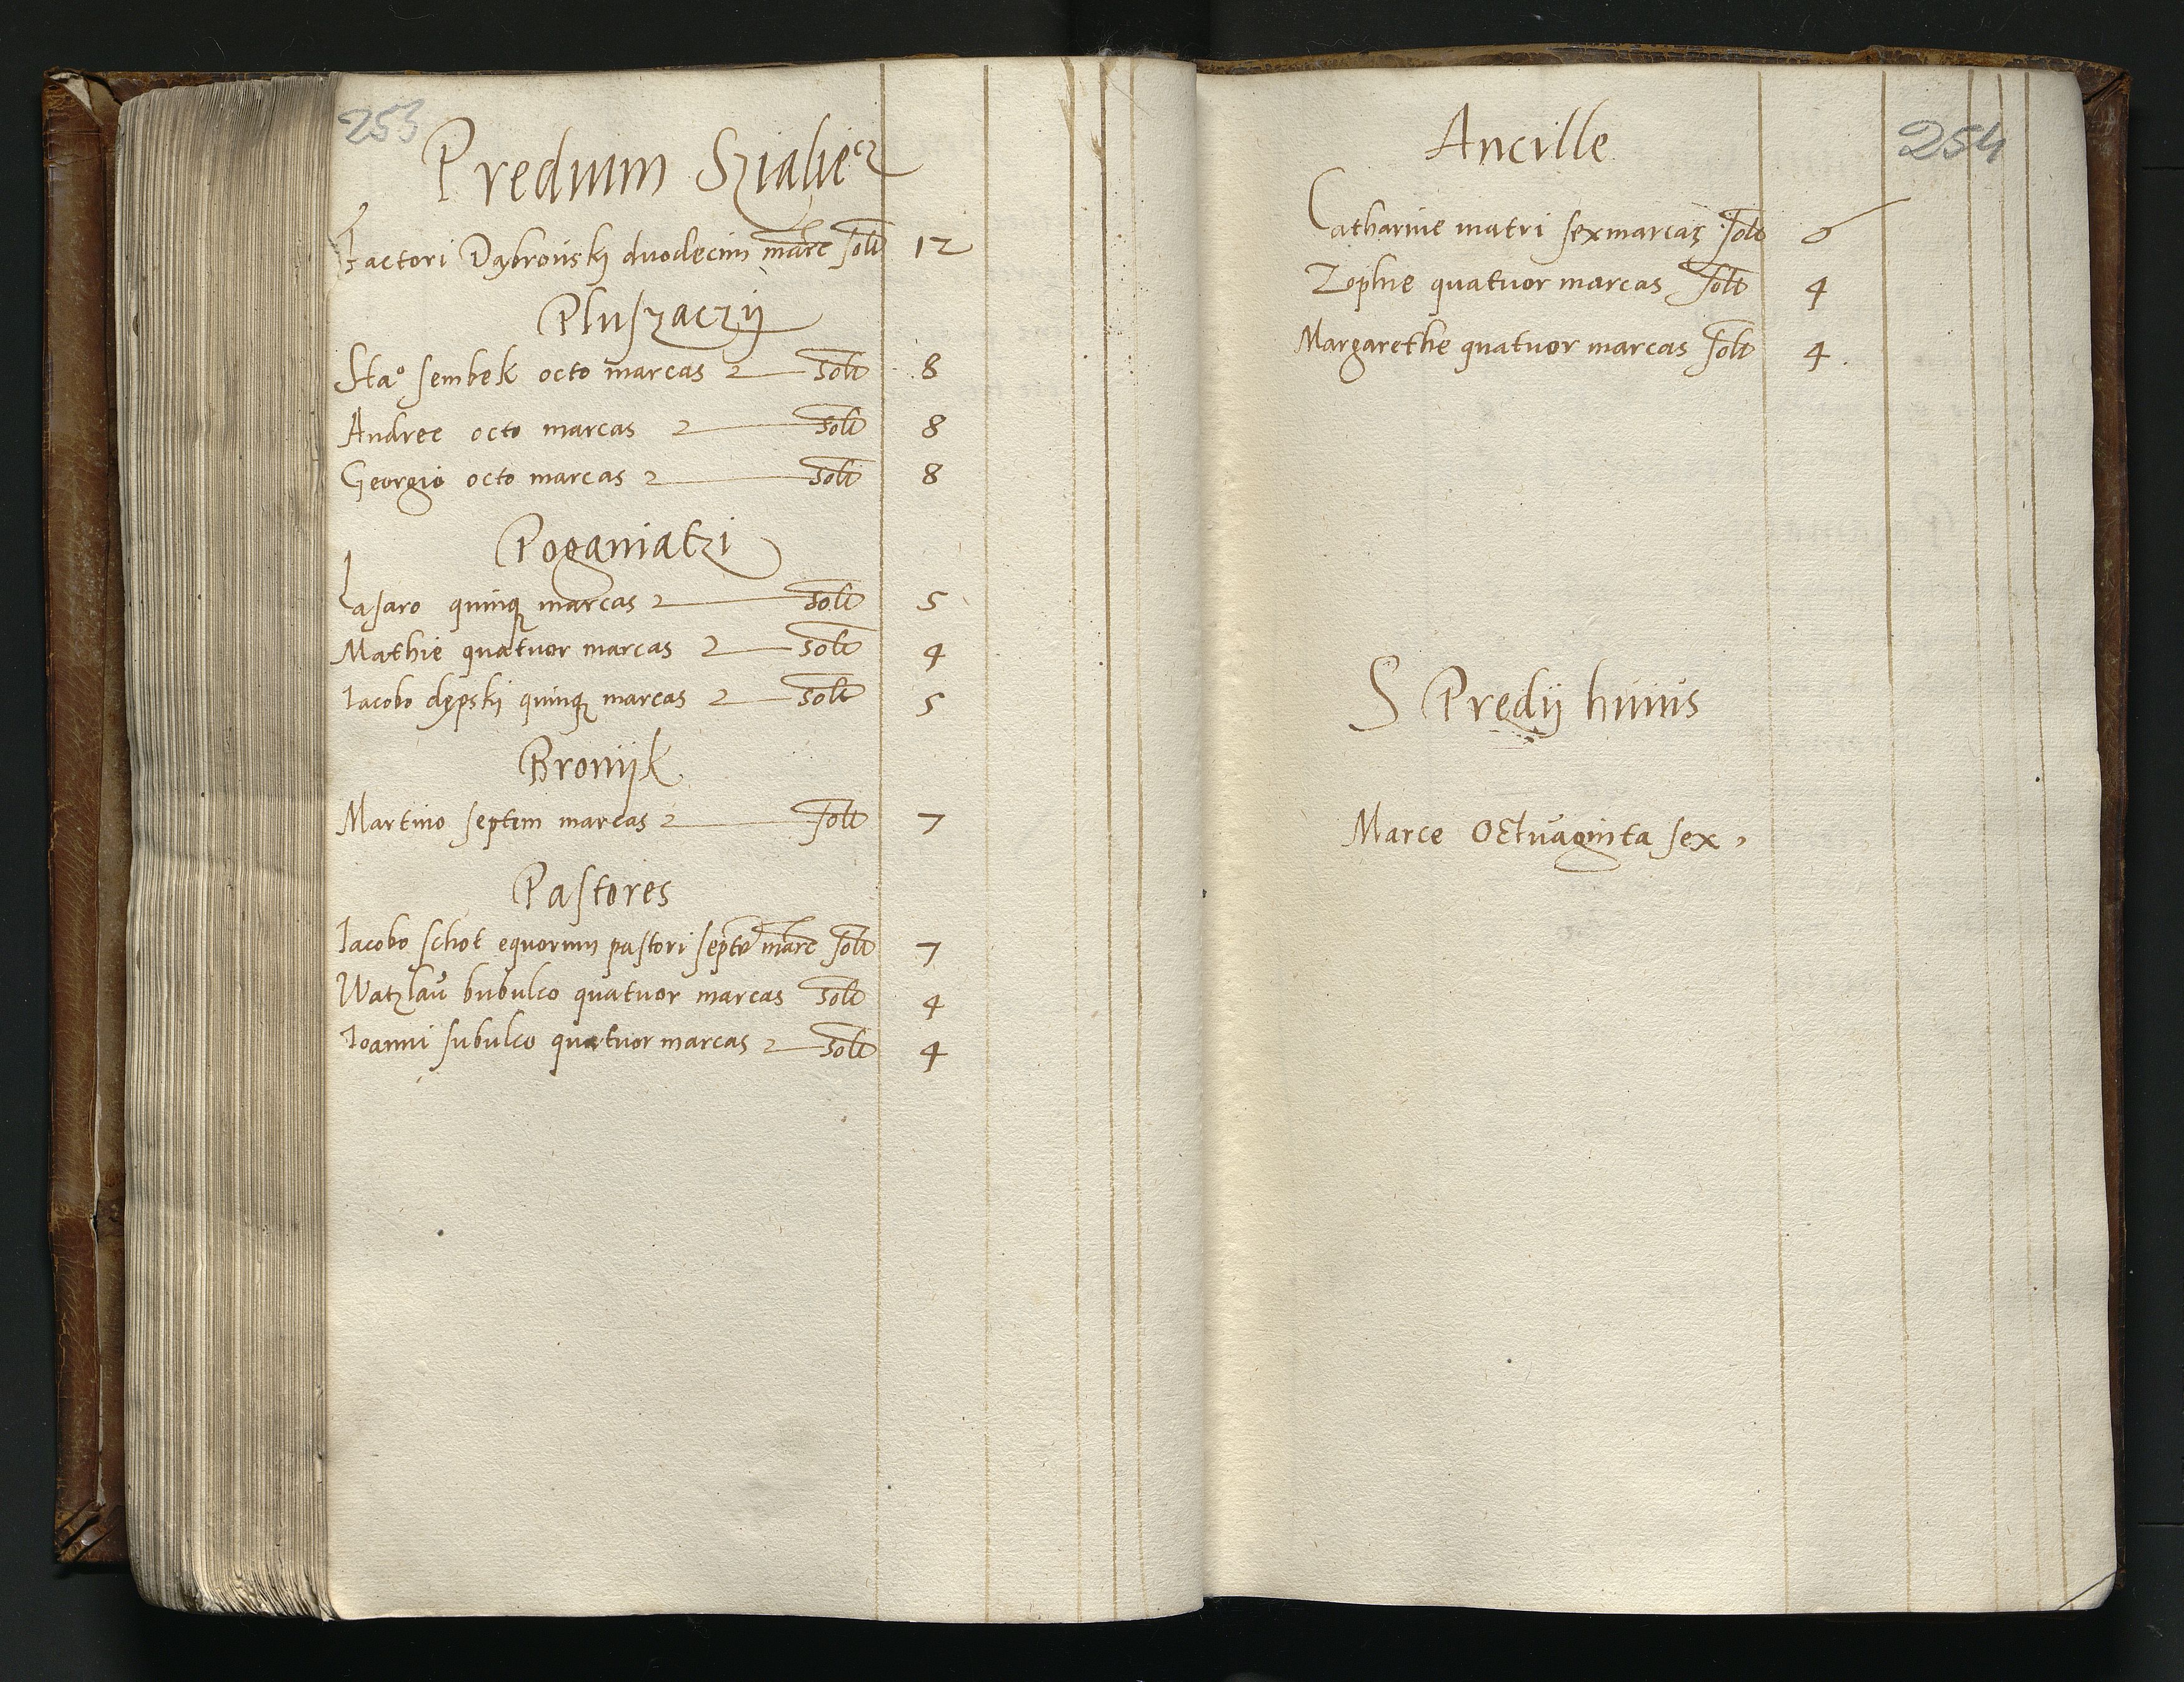 253
Predium Szialiecz
Factori Dąbrowskj duodecim marc solt 12
Pluszaczij
Stao sembek octo marcas solt 8
Andree octo marcas solt 8
Georgio octo marcas solt 8
Poganiatzi
Lasaro quinq marcas solt 5
Mathie quatuor marcas solt 4
Iacobo dępskj quinq marcas solt 5
Broniјk
Martino septem marcas solt 7
Pastores
Iacobo schot equorum pastori septe marc solt 7
Watzlau bubulco quatuor marcas solt 4
Ioanni subulco quatuor marcas solt 4
254
Ancille
Catharine matri sex marcas solt 6
Zophie quatuor marcas solt 4
Margarethe quatuor marcas solt 4
S Predij huius
Marce Octuaginta sex